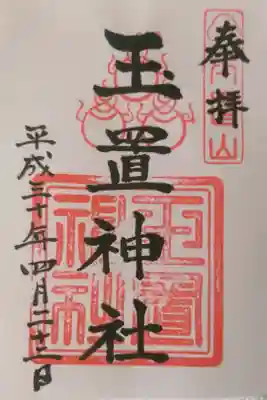 奉拝
玉置神社
平成三十年四月二十三日
玉置神社